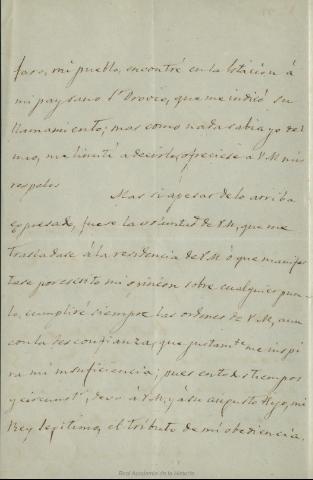 faro, mi pueblo, encontré en la Estación á
mi paysano Sr Orovio, que me indicó su
llamamiento; mas como nada sabia yo del
mio, me limité a decirle, ofreciese á V.M mis
respetos
Mas si apesar de lo arriba
espresado, fuese la voluntd de V.M, que me
trasladase á la residencia de V.M ó que manifes
tase por escrito mi opinion sobre cualquier pun
to, cumpliré siempre las ordenes de V.M, aun
con la desconfianza, que justamte me inspi
ra mi insuficiencia; pues en todos tiempos
y circunsts, devo á V.M, y á su augusto Hijo, mi
Rey legitimo, el tributo de mi obediencia.
Real Academia de la Historia